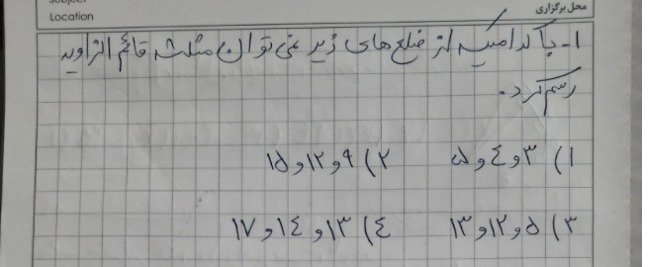 محل برگزاری
Location
۱- با کدامیک از ضلع های زیر نمی توان مثلث قائم الزاویه
رسم کرد.
۱) ۳ و ٤ و ۵ ۲) ۹ و ۱۲ و ۱۵
۳) ۵ و ۱۲ و ۱۳ ٤) ۱۳ و ۱٤ و ۱۷